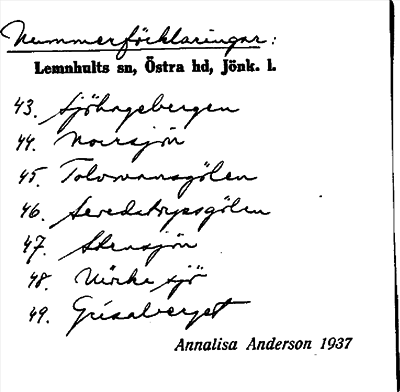 Nummerförklaringar:
Lemnhults sn, Östra hd, Jönk. l.
43. Sjöhagebergen
44. Norrsjön
45. Tolvmansgölen
46. Seredstorpsgölen
47. Stensjön
48. Mörke sjö
49. Grisaberget
Annalisa Anderson 1937